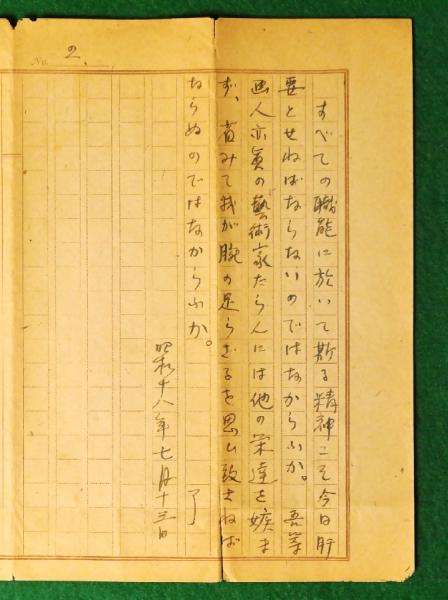 No. 2
すべての職能に於いて斯る精神こそ今日肝
要とせねばならないのではなからふか。吾等
画人亦真の藝術家たらんには他の栄達を嫉ま
ず、省みて我が腕の足らざるを思ひ致さねば
ならぬのではなからふか。
了
昭和十八年七月十三日